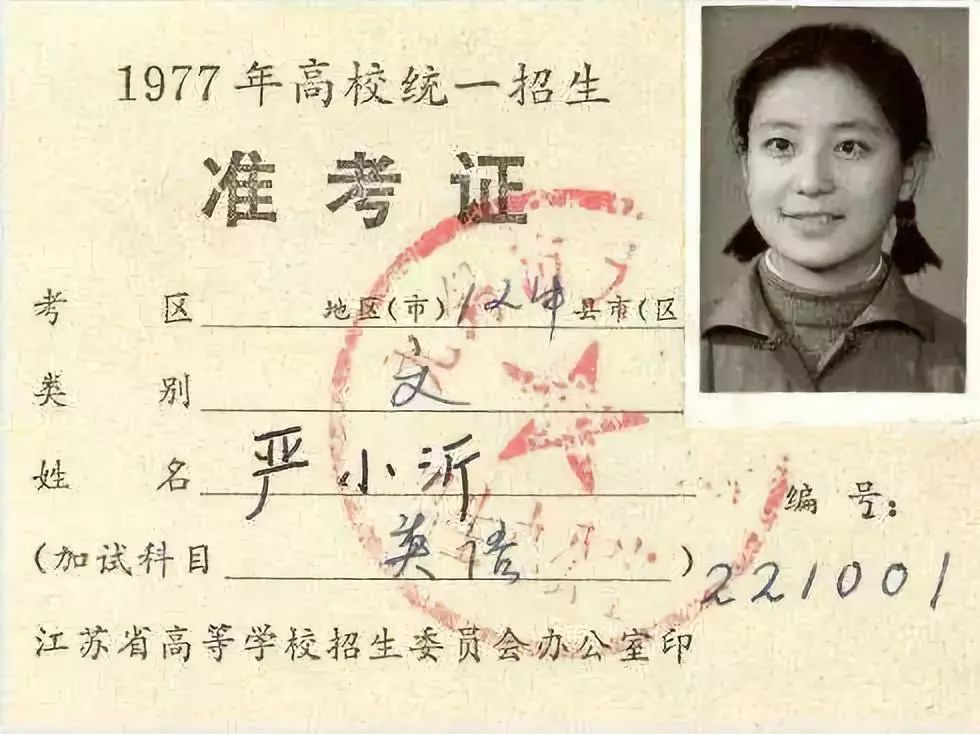 1977年高校统一招生
准考证
考 区 地区(市) 县市(区
类 别 文
姓 名 严小沂
编 号：
(加试科目 英语 )
221001
江苏省高等学校招生委员会办公室印